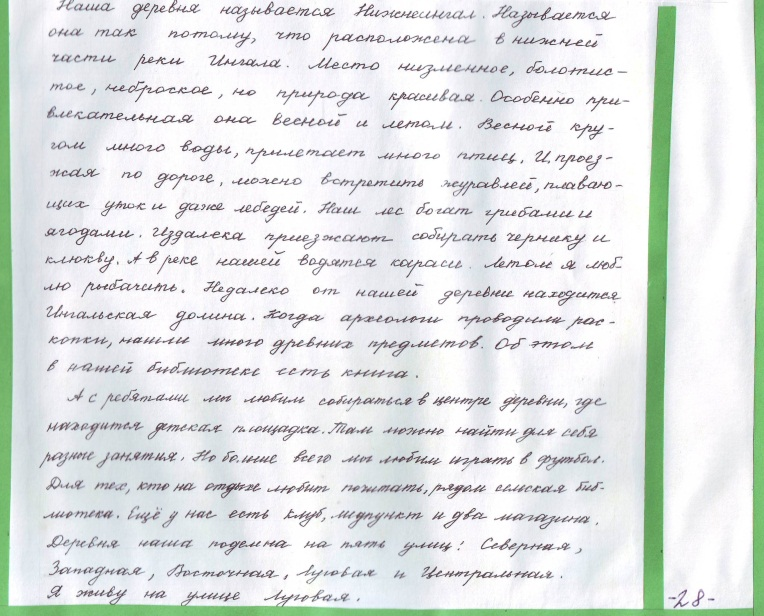 Наша деревня называется Нижнеингал. Называется
она так потому, что расположена в нижней
части реки Ингала. Место низменное, болотис-
тое, неброское, но природа красивая. Особенно при-
влекательная она весной и летом. Весной кру-
гом много воды, прилетает много птиц. И, проез-
жая по дороге, можно встретить журавлей, плаваю-
щих уток и даже лебедей. Наш лес богат грибами и
ягодами. Издалека приезжают собирать чернику и
клюкву. А в реке нашей водятся караси. Летом я люб-
лю рыбачить. Недалеко от нашей деревни находится
Ингальская долина. Когда археологи проводили рас-
копки, нашли много древних предметов. Об этом
в нашей библиотеке есть книга.
А с ребятами мы любим собираться в центре деревни, где
находится детская площадка. Там можно найти для себя
разные занятия. Но больше всего мы любим играть в футбол.
Для тех, кто на отдыхе любит почитать, рядом сельская биб-
лиотека. Ещё у нас есть клуб, медпункт и два магазина.
Деревня наша поделена на пять улиц: Северная,
Западная, Восточная, Луговая и Центральная.
Я живу на улице Луговая.
-28-